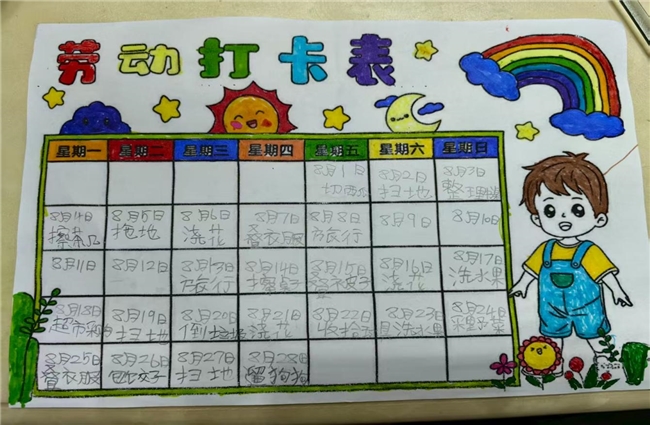 劳动打卡表
星期一 星期二 星期三 星期四 星期五 星期六 星期日
8月1日 8月2日 8月3日
扫地
8月4日 8月5日 8月6日 8月7日 8月8日 8月9日 8月10日
拖地 浇花 叠衣服 旅行
8月11日 8月12日 8月13日 8月14日 8月15日 8月16日 8月17日
旅行 擦桌子 浇花 洗水果
8月18日 8月19日 8月20日 8月21日 8月22日 8月23日 8月24日
扫地 倒垃圾 浇花 洗水果
8月25日 8月26日 8月27日 8月28日
叠衣服 包饺子 扫地 遛狗狗